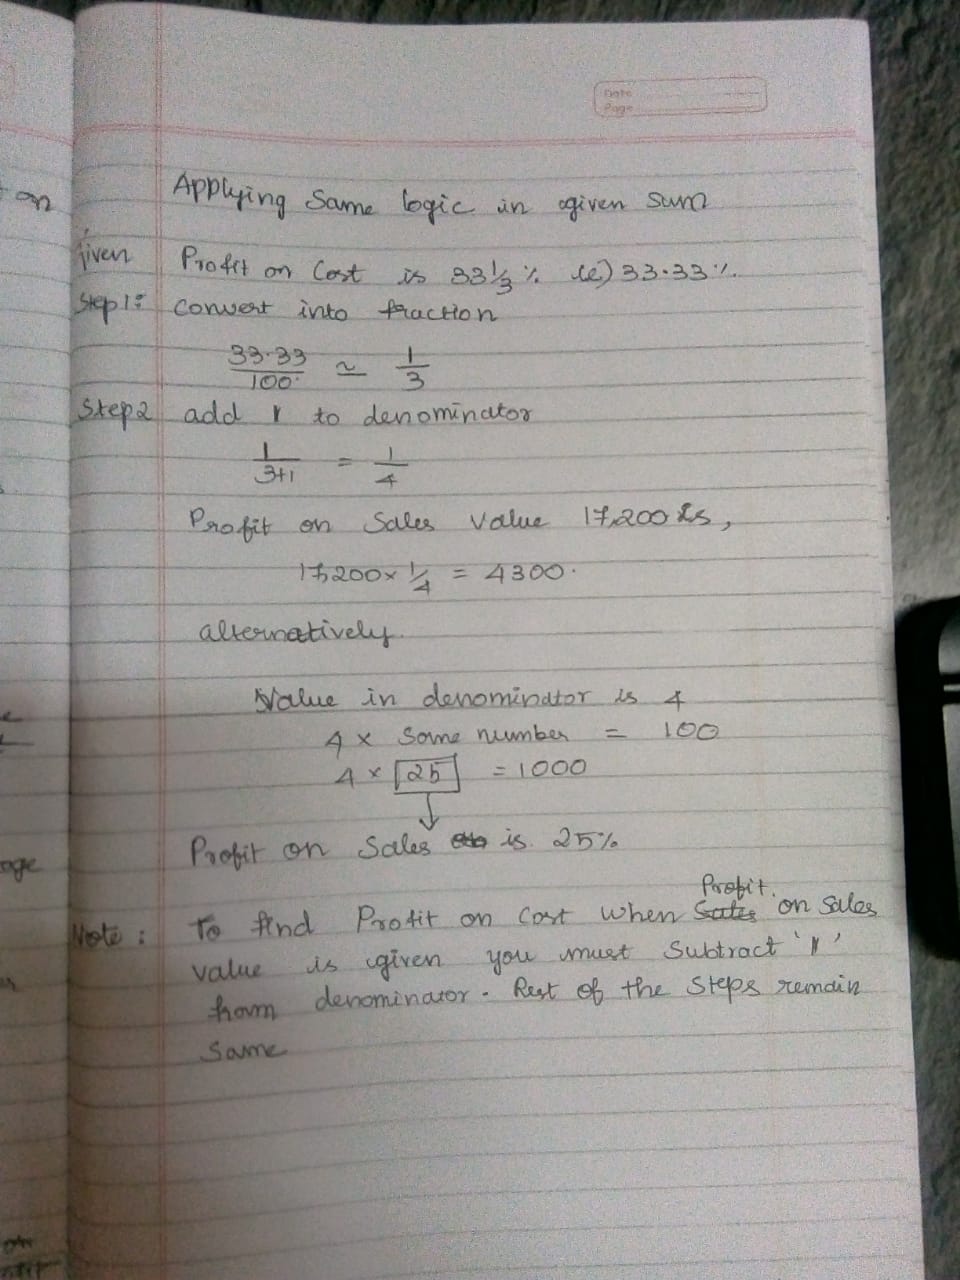 Date
Page
on
Applying Same logic in given sum
Given Profit on Cost is 33 1/3 % ie) 33.33 %.
Step 1: Convert into fraction
33.33/100 ≃ 1/3
Step 2 add 1 to denominator
1/3+1 = 1/4
Profit on Sales value 17,200 is,
17,200 × 1/4 = 4300.
alternatively.
Value in denominator is 4
4 × Some number = 100
4 × 25 = 1000
Profit on Sales is 25%
age
Profit
Note : To find Profit on Cost when on Sales
value is given you must Subtract '1'
from denominator. Rest of the Steps remain
Same